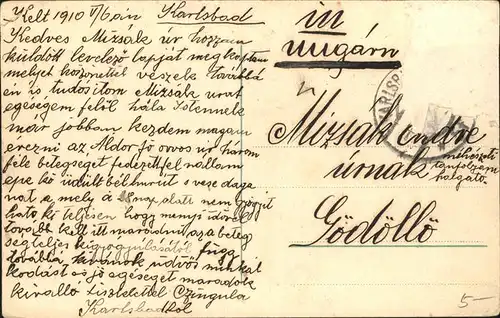 Kelt 1910 V/6 án Karlsbad
Kedves Mizsák úr hozzám
küldött levelező lapját megkaptam
melyet köszönettel veszek továbbá
én is tudósítom Mizsák urat
egésegem felől hála Istennek
már jobban kezdem magam
érezni az Áldor jó orvos úr három
féle betegséget fedezett fel nállam
epe kő üdült bélhurút s vese daga
nat a mely a 28 nap alatt nem
ható ki teljesen hogy menyi idővel
tovább kell itt maradni az a beteg
ség teljes kigyogyulásától függ
továbbá kívánok üdvös munkál
kodást és jó egéséget maradok
kiválló tisztelettel Czingula
Karlsbadból
in
Ungárn
KARLSB
Mizsák Endre
úrnak
méhészeti
tanfolyam
halgató
Gödöllő
5-